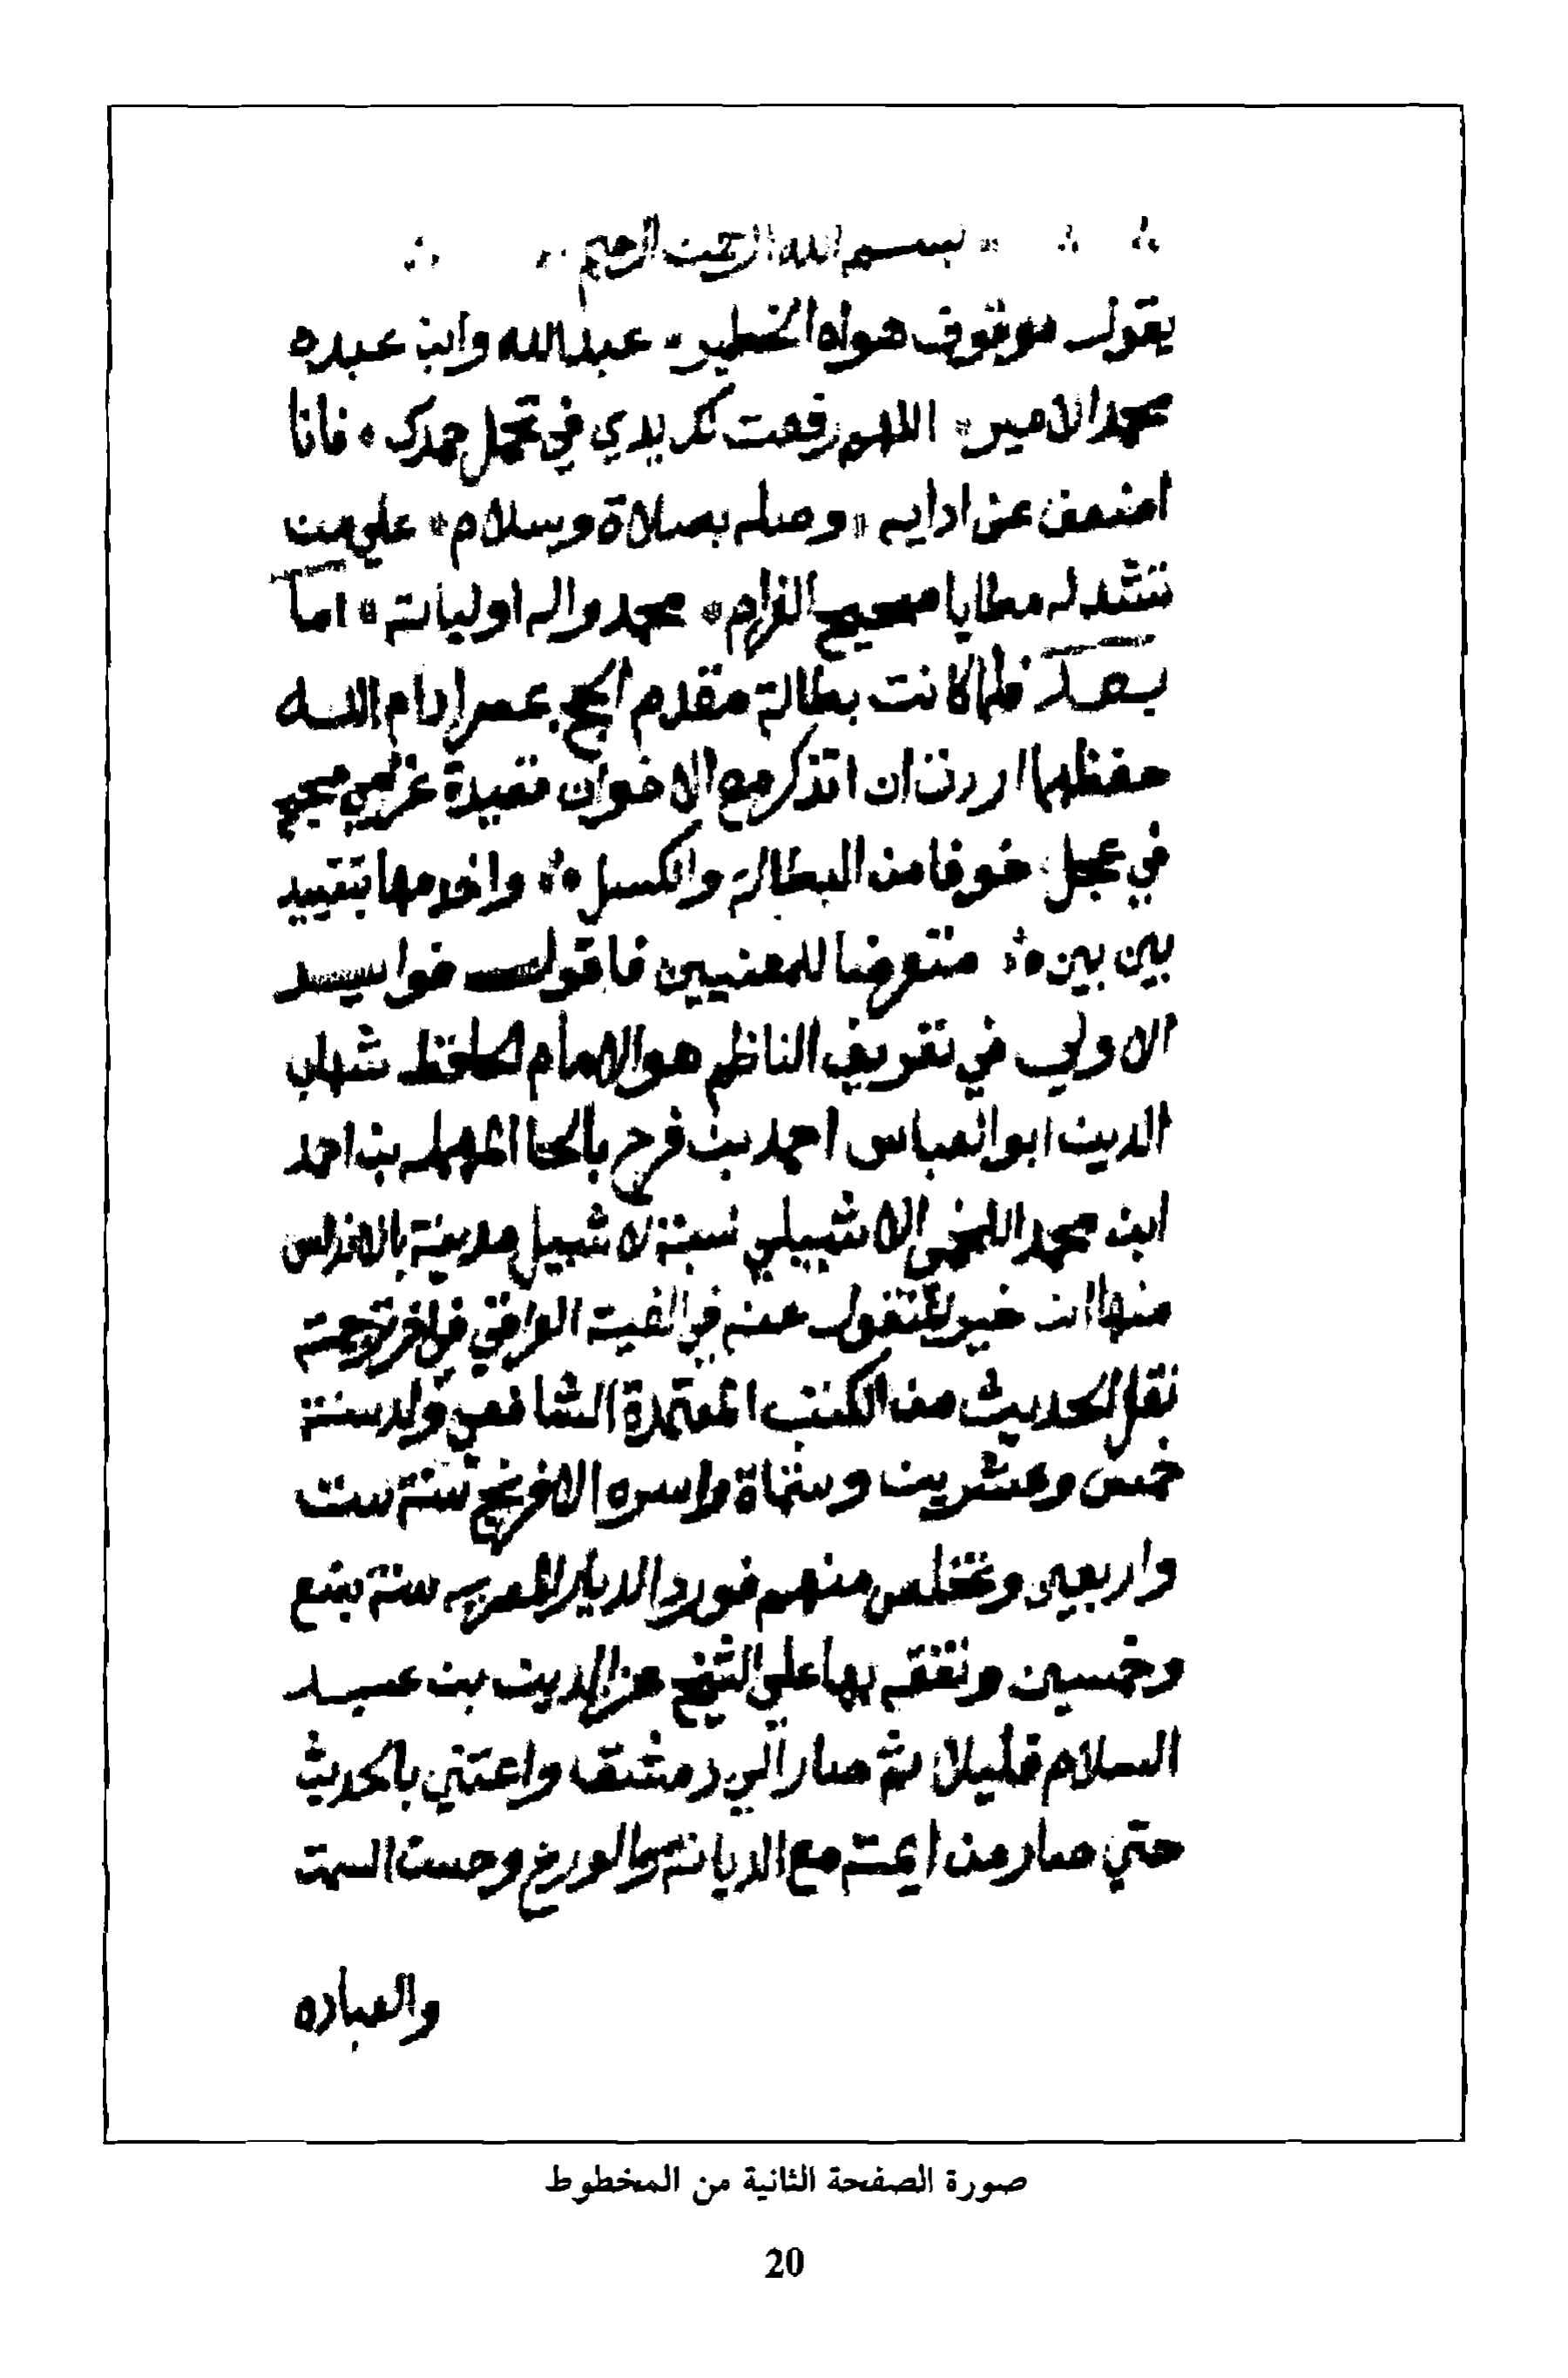 بسم الله الرحمن الرحيم
يقول موثوق هواه الخطير عبد الله وابن عبده
محمد الامير اللهم رفعت لك يدي في تحمل حمدك فانا
اضعف عن ادايه وصله بصلاة وسلام علي من
تشد له مطايا صحيح الغرام محمد واله اوليانه اما
بعد فلما كانت بطالة مقدم الحج بمصر ادام الله
حفظها اردت ان اتذكر مع الاخوان قصيدة غرامي صحيح
في عجل خوفا من البطالة والكسل واخدمها بتقييد
بين بين متعرضا للمعنيين فاقول فوايد
الاولي في تعريف الناظم هو الامام الحافظ شهاب
الدين ابو العباس احمد بن فرح بالحا المهمله بن احمد
ابن محمد اللخمي الاشبيلي نسبة لاشبيل مدينة بالاندلس
منها ابن خير المنقول عنه في الفية العراقي في اخر ترجمة
نقل الحديث من الكتب المعتمدة الشافعي ولد سنة
خمس وعشرين وستماة واسره الافرنج سنة ست
واربعين وتخلص منهم فورد الديار المصريه سنة بضع
وخمسين وتفقه بها علي الشيخ عز الدين بن عبد
السلام قليلا ثم صار الي دمشق واعتني بالحديث
حتي صار من ايمة مع الديانة والورع وحسن السمت
والعباده
صورة الصفحة الثانية من المخطوط
20